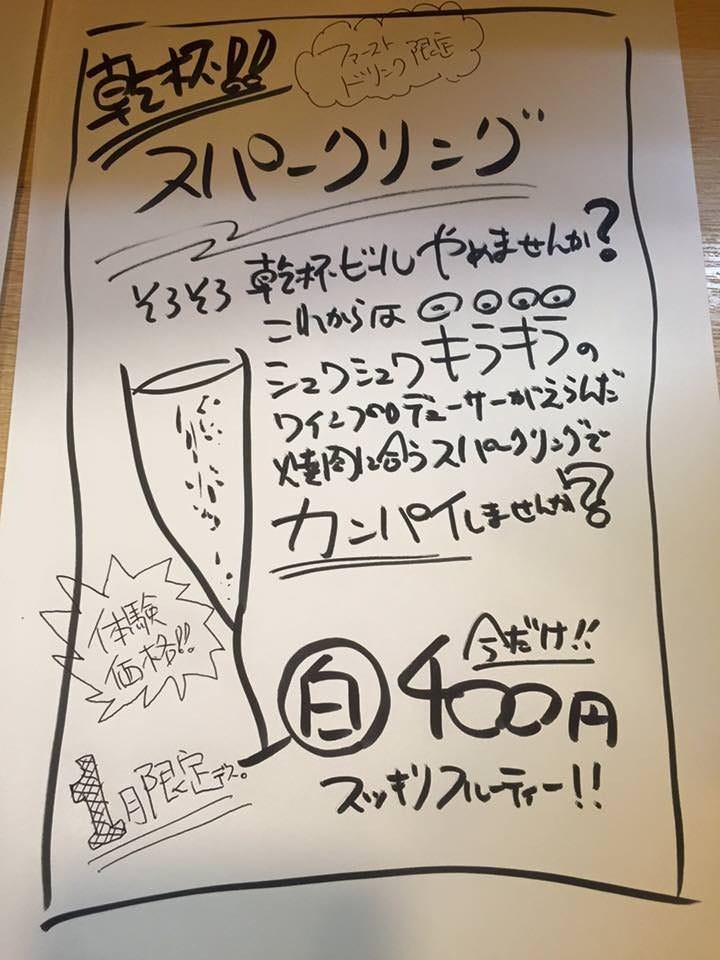 乾杯!!
ファースト
ドリンク限定
スパークリング
そろそろ乾杯ビールやめませんか?
これからは
シュワシュワキラキラの
ワインプロデューサーがえらんだ
焼肉に合うスパークリングで
カンパイしませんか?
体験
価格!!
今だけ!!
白 400円
スッキリフルーティー!!
1月限定デス。